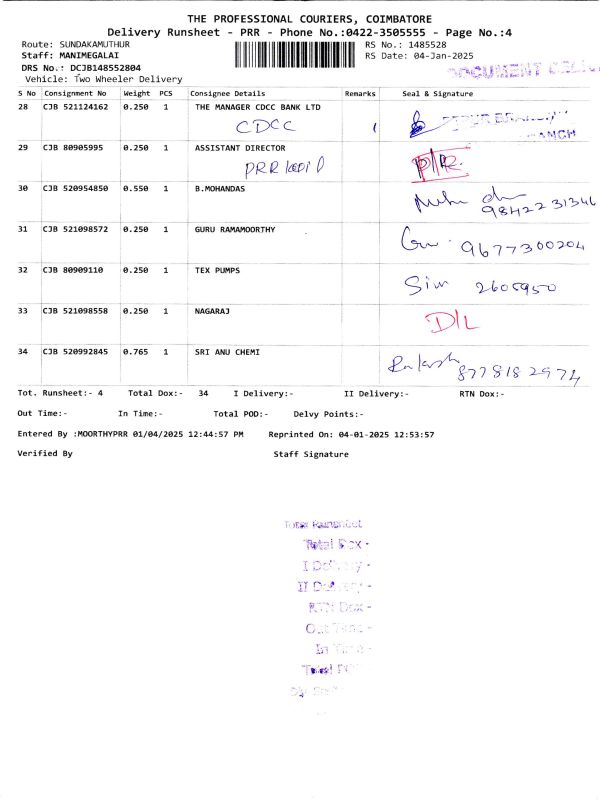 THE PROFESSIONAL COURIERS, COIMBATORE
Delivery Runsheet - PRR - Phone No.:0422-3505555 - Page No.:4
Route: SUNDAKAMUTHUR RS No.: 1485528
Staff: MANIMEGALAI RS Date: 04-Jan-2025
DRS No.: DCJB148552804
DOCUMENT
Vehicle: Two Wheeler Delivery
S No Consignment No Weight PCS Consignee Details Remarks Seal & Signature
28 CJB 521124162 0.250 1 THE MANAGER CDCC BANK LTD
CDCC
29 CJB 80905995 0.250 1 ASSISTANT DIRECTOR
PRR
30 CJB 520954850 0.550 1 B.MOHANDAS
9842231346
31 CJB 521098572 0.250 1 GURU RAMAMOORTHY
9677300204
32 CJB 80909110 0.250 1 TEX PUMPS
2605950
33 CJB 521098558 0.250 1 NAGARAJ
D/L
34 CJB 520992845 0.765 1 SRI ANU CHEMI
8778182974
Tot. Runsheet:- 4 Total Dox:- 34 I Delivery:- II Delivery:- RTN Dox:-
Out Time:- In Time:- Total POD:- Delvy Points:-
Entered By :MOORTHYPRR 01/04/2025 12:44:57 PM Reprinted On: 04-01-2025 12:53:57
Verified By Staff Signature
Total Runsheet
Total Dox -
I Delivery -
II Delivery -
RTN Dox -
Out Time -
In Time -
Total